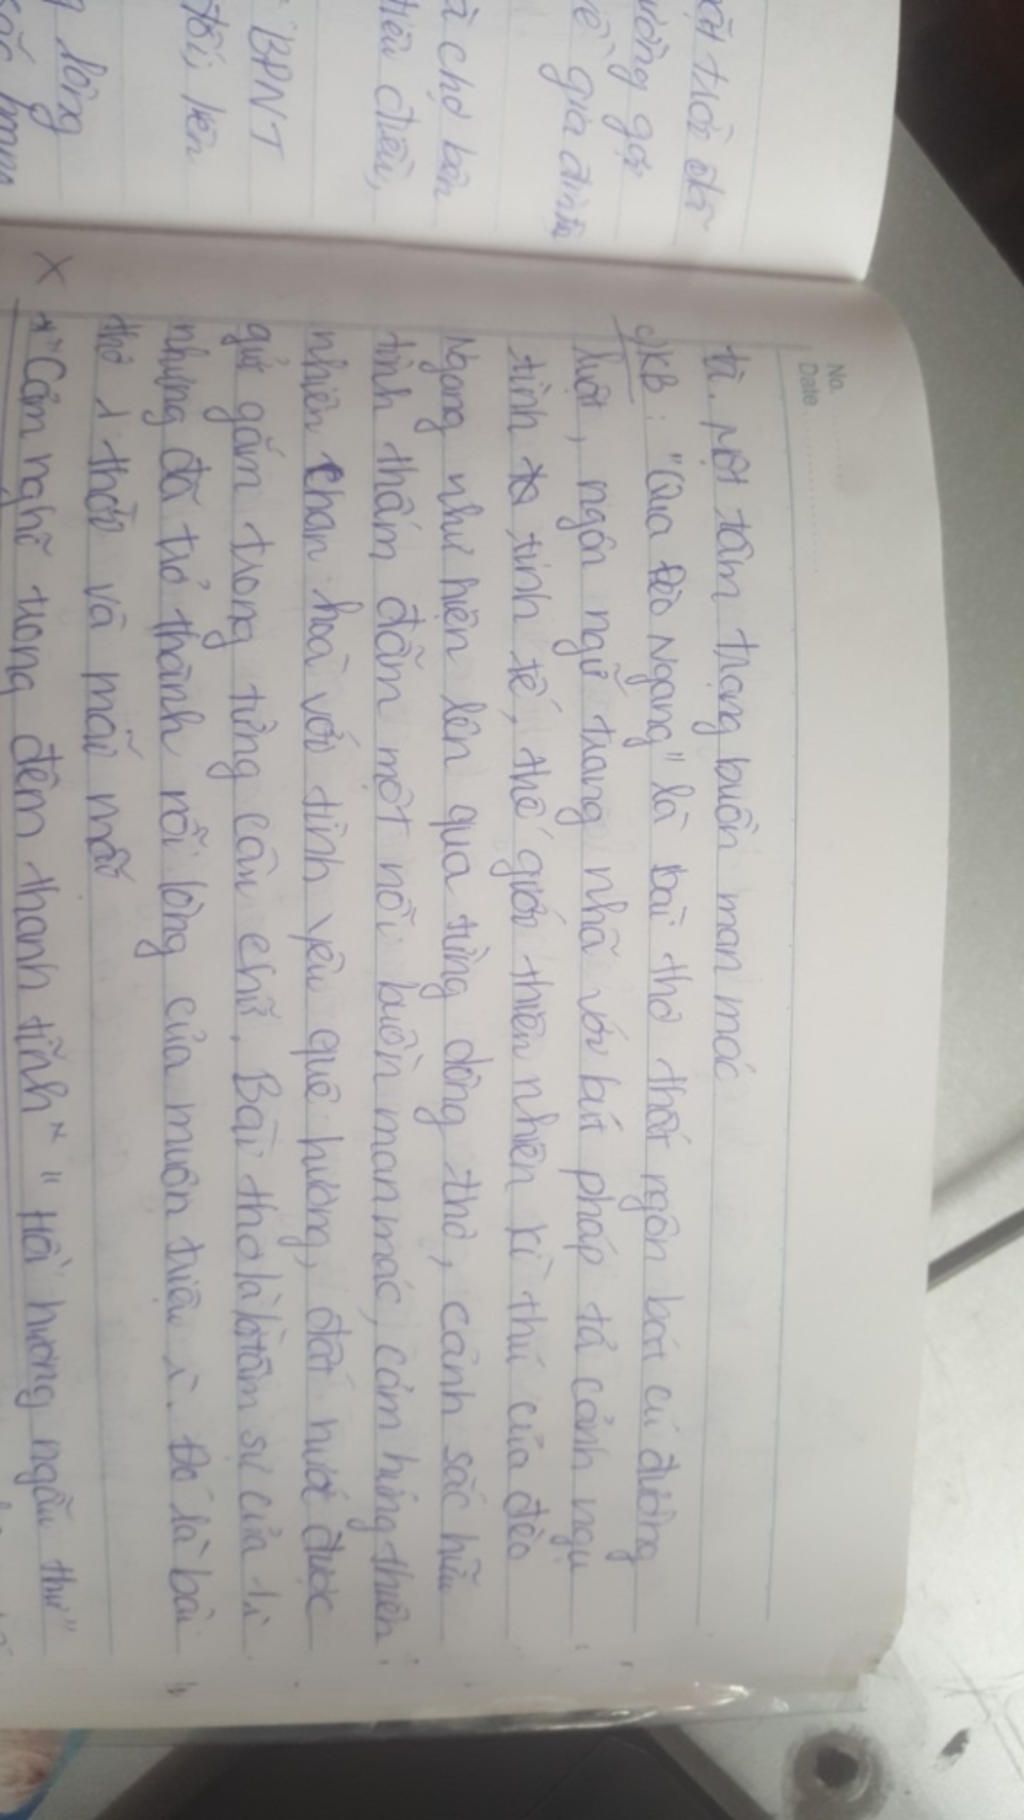 ặt trời đã
ường gợi
về gia đình
à chợ bên
tiêu điều,
BPNT
đối, liên
lòng
No.
Date
tả. Một tâm trạng buồn man mác
c) KB: "Qua Đèo Ngang" là bài thơ thất ngôn bát cú đường
luật, ngôn ngữ trang nhã với bút pháp tả cảnh ngụ
tình tinh tế, thế giới thiên nhiên kì thú của đèo
Ngang như hiện lên qua từng dòng thơ, cảnh sắc hữu
tình thấm đẫm một nỗi buồn man mác, cảm hứng thiên
nhiên chan hoà với tình yêu quê hương, đất nước được
gửi gắm trong từng câu chữ. Bài thơ là lời tâm sự của 1
nhưng đã trở thành nỗi lòng của muôn triệu . Đó là bài
thơ 1 thời và mãi mãi
X * "Cảm nghĩ trong đêm thanh tĩnh" * " Hồi hương ngẫu thư"